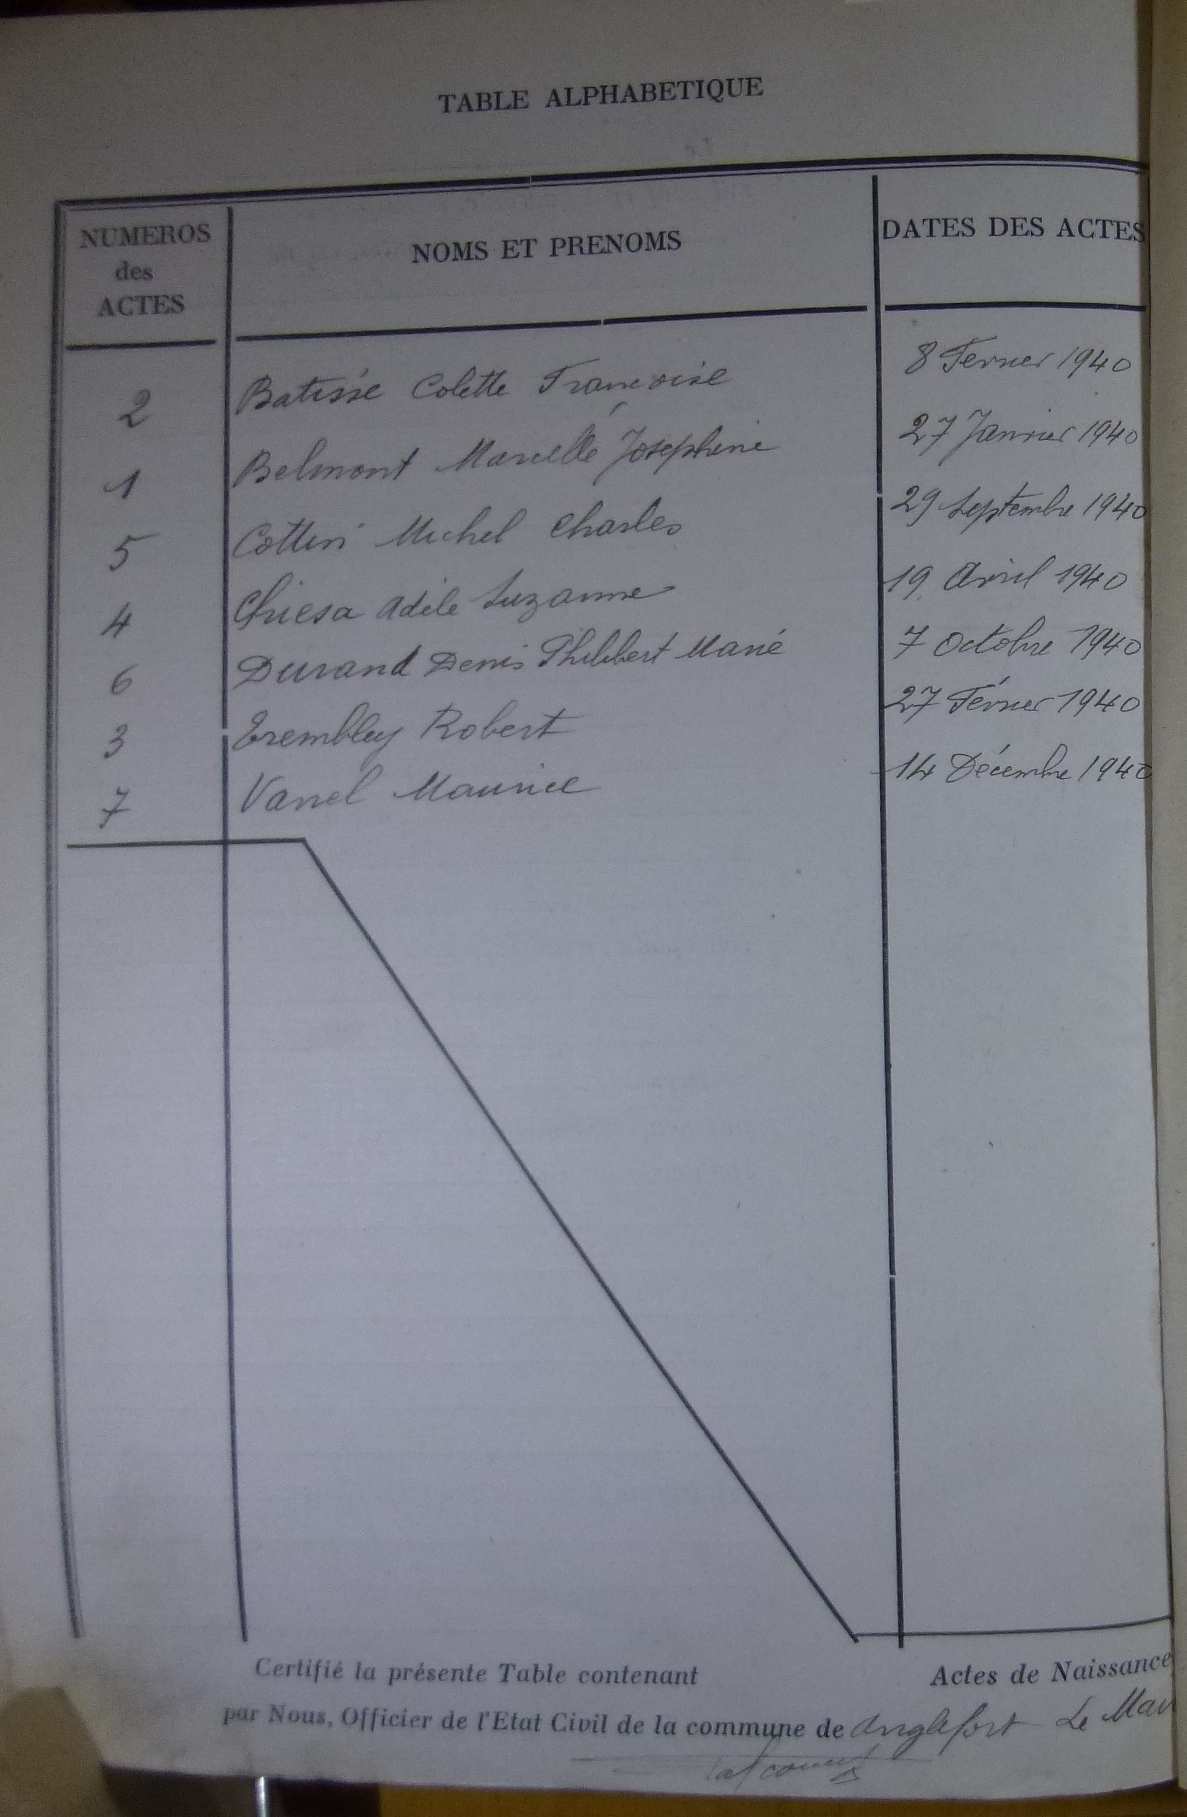 TABLE ALPHABETIQUE
NUMEROS des ACTES NOMS ET PRENOMS DATES DES ACTES
2 Batisse Colette Francoise 8 Fevrier 1940
1 Belmont Marcelle Josephine 27 Janvier 1940
5 Cottin Michel Charles 29 Septembre 1940
4 Chiesa Adèle Suzanne 19 Avril 1940
6 Durand Denis Philibert Marie 7 Octobre 1940
3 Trembley Robert 27 Février 1940
7 Vanel Maurice 14 Décembre 1940
Certifié la présente Table contenant Actes de Naissance
par Nous, Officier de l'Etat Civil de la commune de Anglefort Le Mai